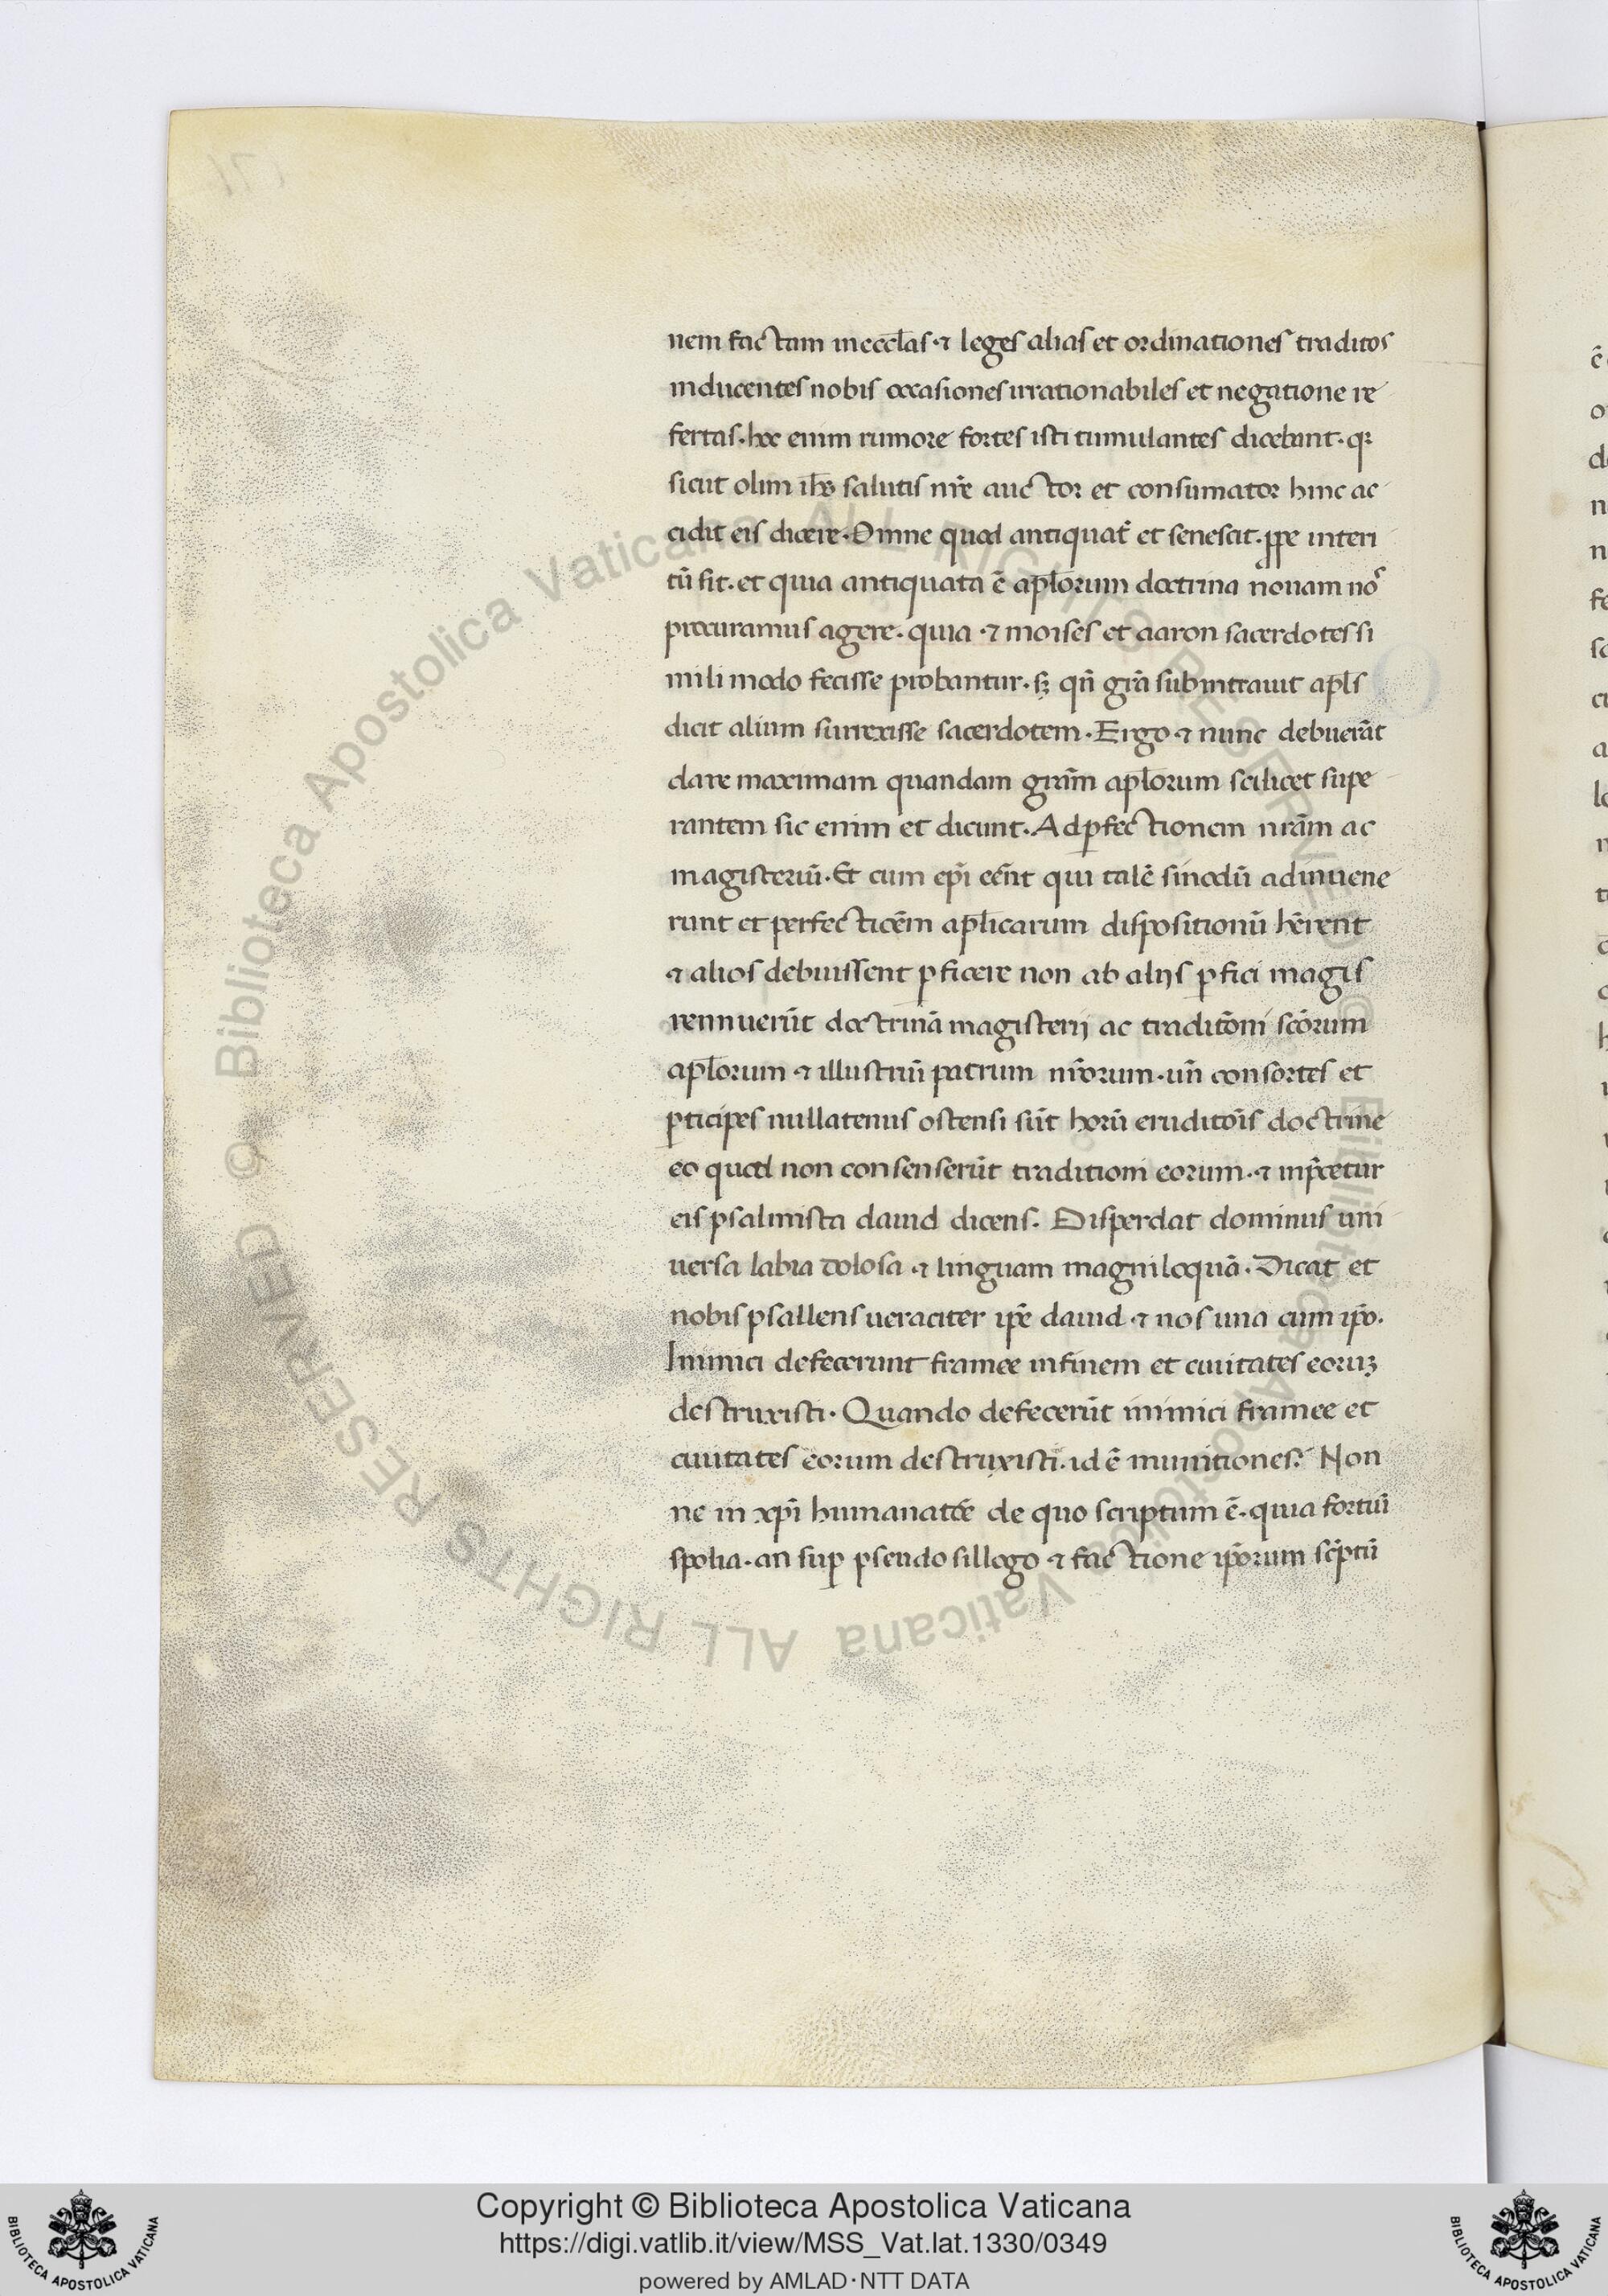 nem factam in eccl̄as · ⁊ leges alias et ordinationes traditos
inducentes nobis occasiones irrationabiles et negatione re
fertas · hoc enim rumore fortes isti tumulantes dicebant · qꝛ
sicut olim ih̄s salutis nr̄e auctor et consumator hinc ac
cidit eis dicere · Omne quod antiquat᷑ et senescit · ꝓpe interi
tū sit · et quia antiquata ē apl̄orum doctrina nouam nō
procuramus agere · quia · ⁊ moises et aaron sacerdotes si
mili modo fecisse probantur · sꝫ qn̄ grā subintrauit apl̄s
dicit alium surrexisse sacerdotem · Ergo ⁊ nunc debuerāt
dare maximam quandam grām apl̄orum scilicet supe
rantem sic enim et dicunt · Ad ꝑfectionem nrām ac
magisteriū · Et cum ep̄i eēnt qui talē sinodū adinuene
runt et perfectioēm apl̄icarum dispositionū hērent
⁊ alios debuissent ꝑficere non ab alijs ꝑfici magis
rennuerūt doctrinā magisterij ac traditōni scōrum
apl̄orum ⁊ illustriū patrum nr̄orum · un̄ consortes et
ꝑticipes nullatenus ostensi sūt horū eruditōis doctrine
eo quod non consenserūt traditioni eorum · ⁊ inp̄cetur
eis psalmista dauid dicens · Disperdat dominus uni
uersa labia dolosa ⁊ linguam magniloquā · Dicat et
nobis psallens ueraciter ip̄e dauid ⁊ nos una cum ip̄o ·
Inimici defecerunt framee in finem et ciuitates eoruꝫ
destruxisti · Quando defecerūt inimici framee et
ciuitates eorum destruxisti · id ē munitiones? Non
ne in xp̄i humanatōe de quo scriptum ē · quia fortiū
spolia · an suꝑ pseudosillogo ⁊ factione ip̄orum sc̄ptū
© Biblioteca Apostolica Vaticana ALL RIGHTS RESERVED
© Biblioteca Apostolica Vaticana ALL RIGHTS RESERVED
Copyright © Biblioteca Apostolica Vaticana
https://digi.vatlib.it/view/MSS_Vat.lat.1330/0349
powered by AMLAD · NTT DATA
BIBLIOTECA APOSTOLICA VATICANA
BIBLIOTECA APOSTOLICA VATICANA